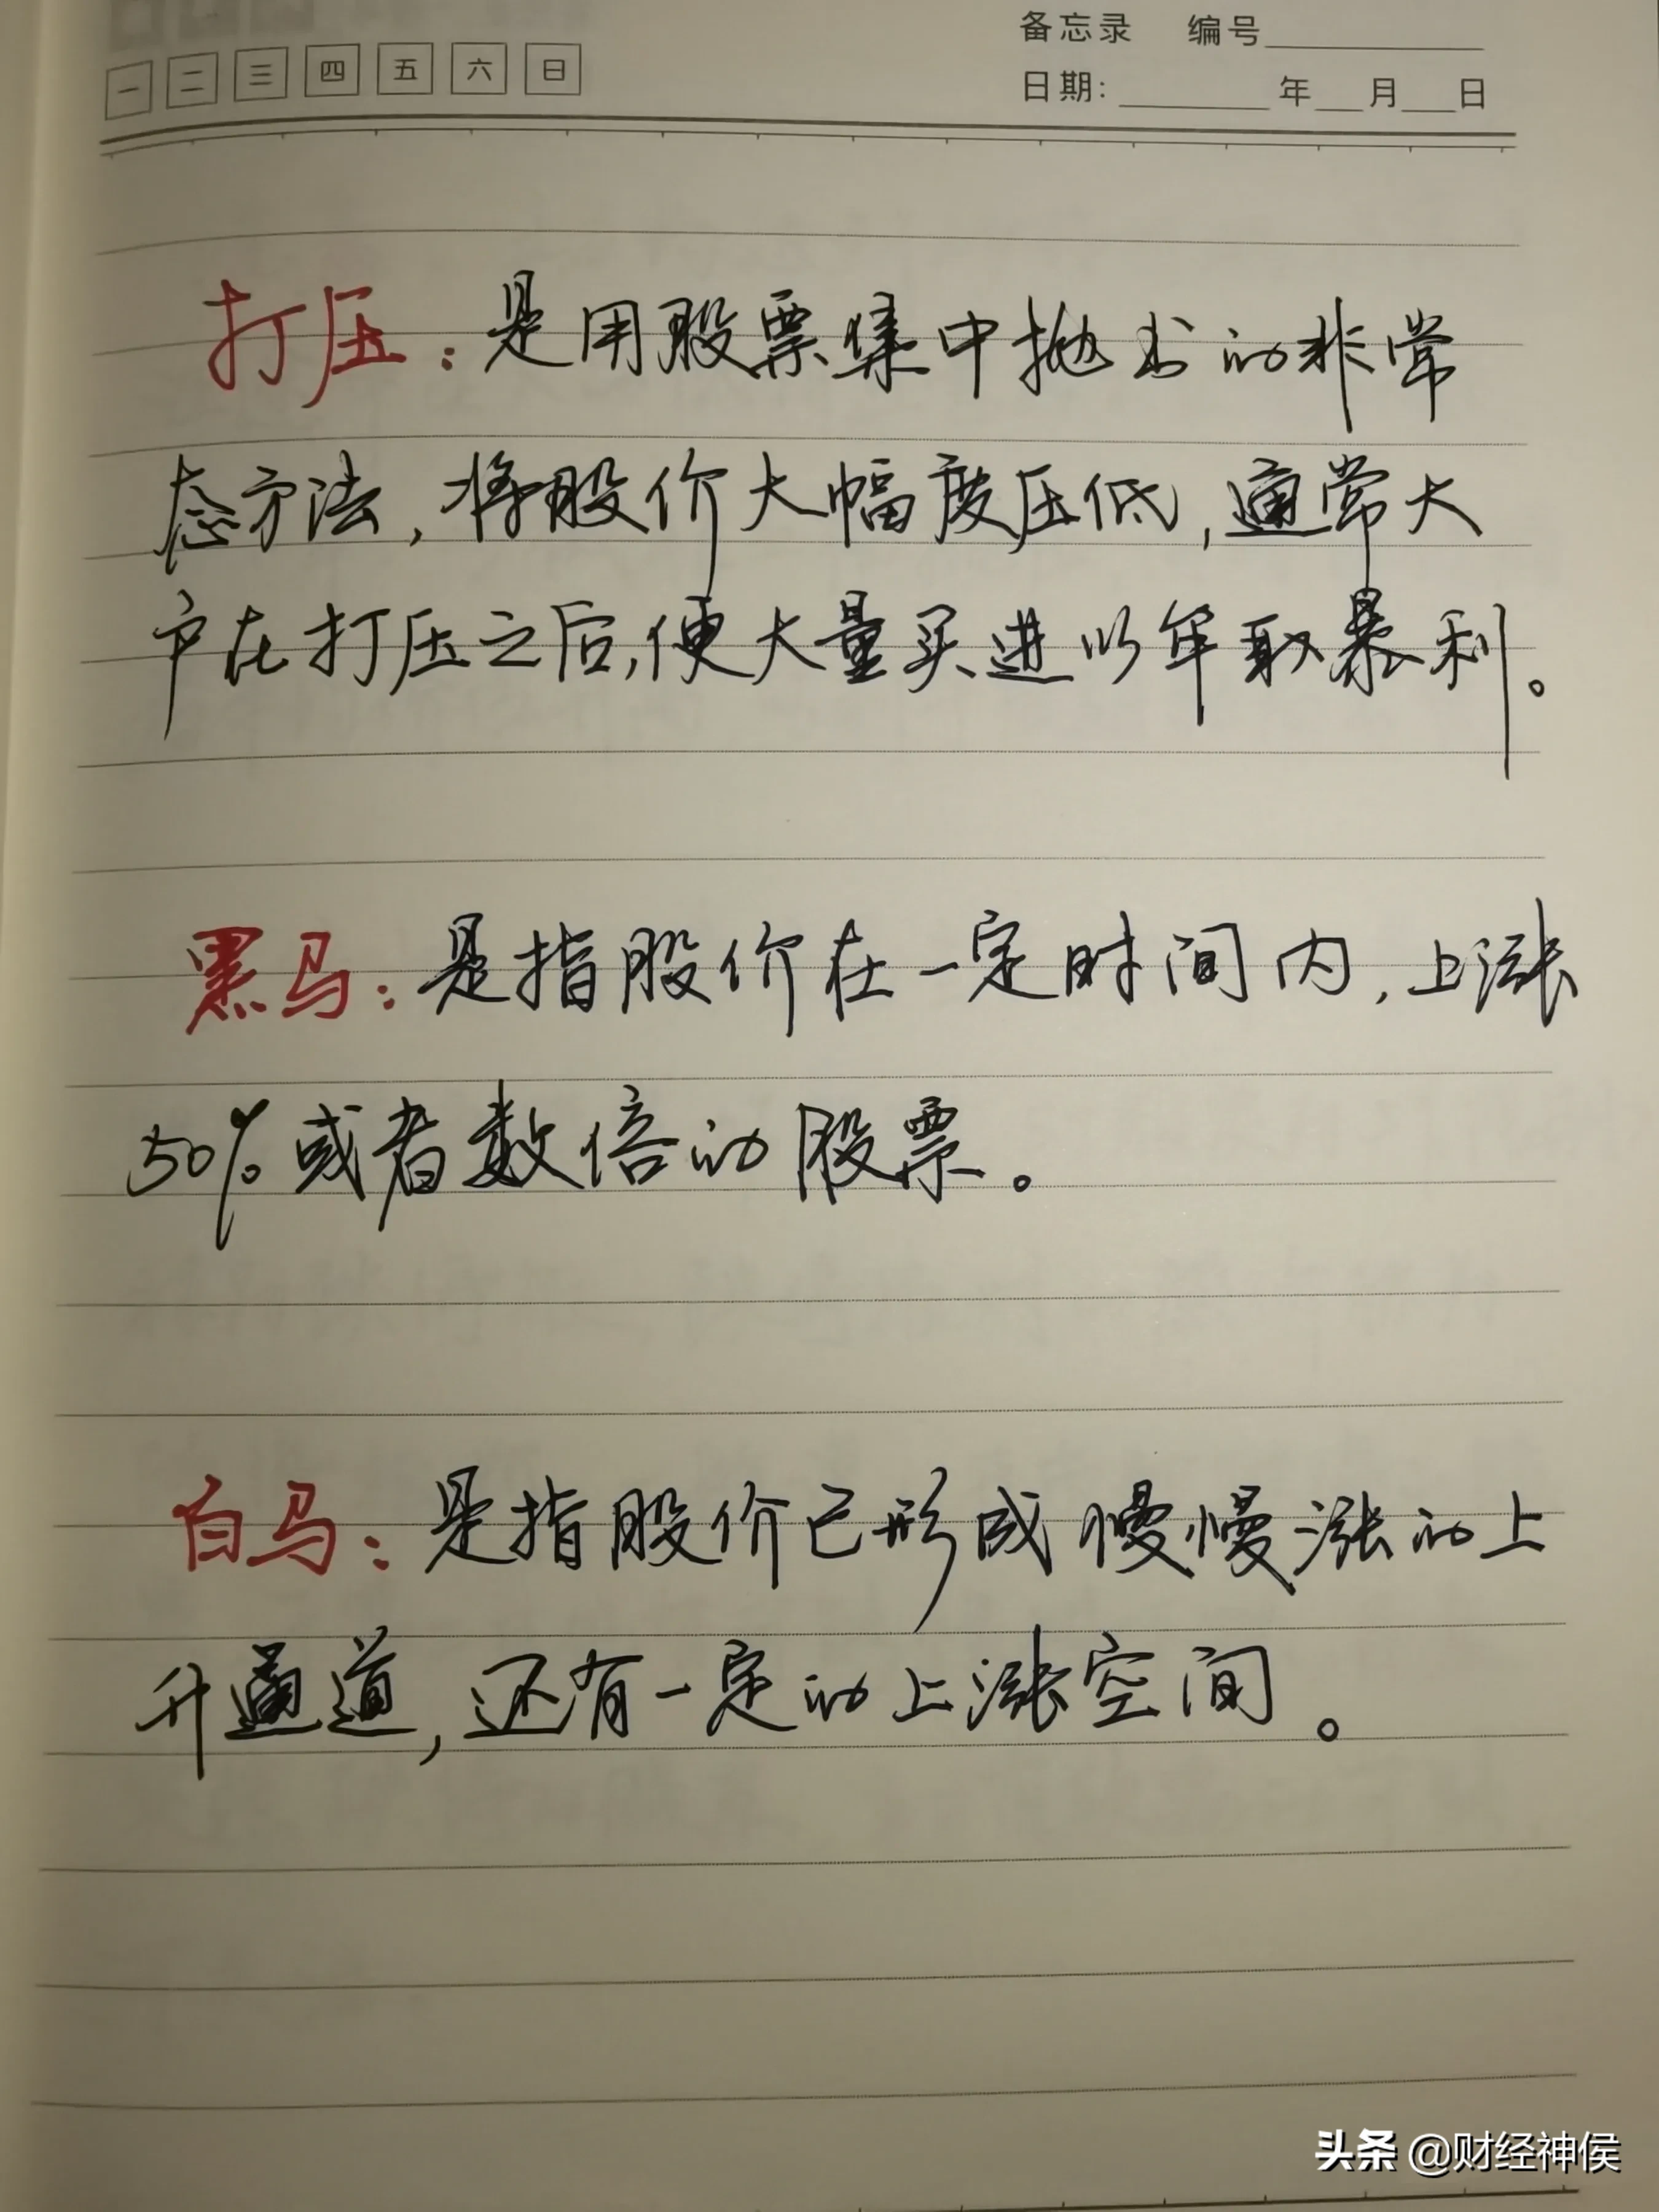 备忘录 编号
一 二 三 四 五 六 日
日期: 年 月 日
打压：是用股票集中抛出的非常
态方法，将股价大幅度压低，通常大
户在打压之后，便大量买进以牟取暴利。
黑马：是指股价在一定时间内，上涨
50%或者数倍的股票。
白马：是指股价已形成慢慢涨的上
升通道，还有一定的上涨空间。
头条 @财经神侯